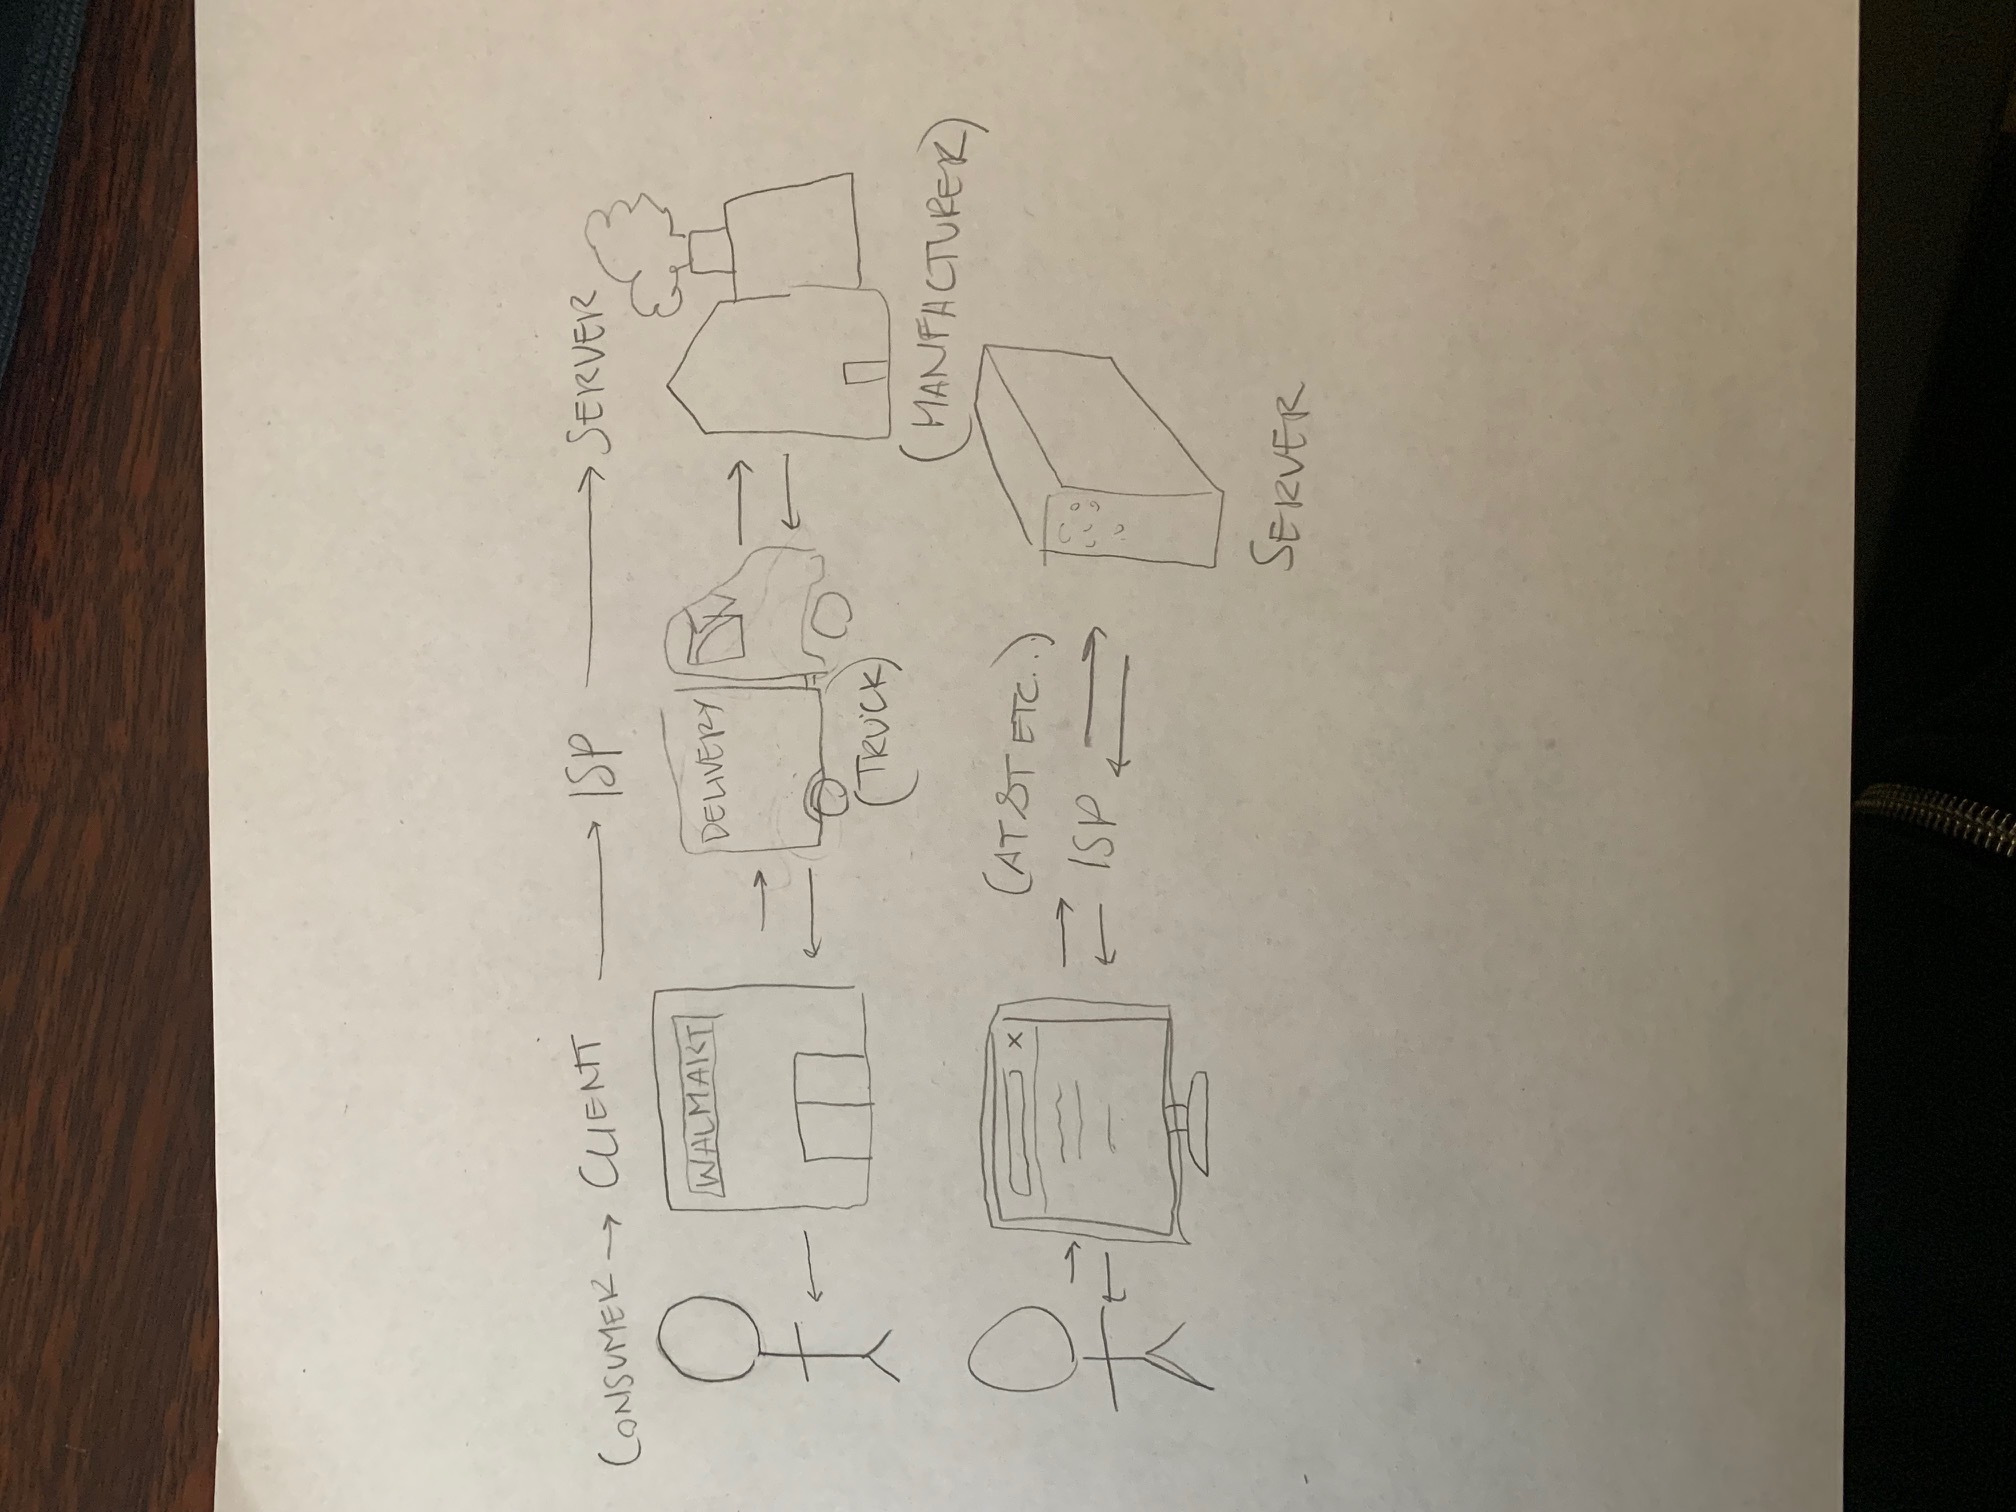 CONSUMER → CLIENT → ISP → SERVER
WALMART
DELIVERY
(TRUCK)
(MANFACTURER)
X
(AT&T ETC..)
ISP
SERVER